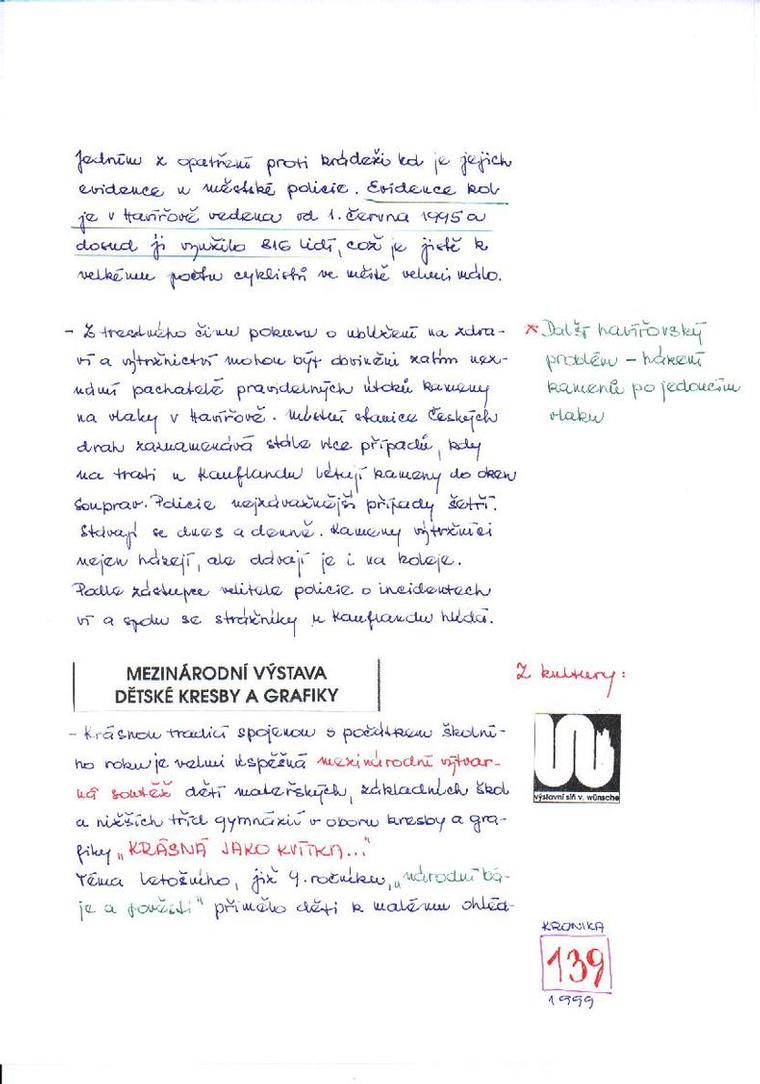 Jedním z opatření proti krádeži kol je jejich
evidence u městské policie. Evidence kol
je v Havířově vedena od 1. června 1995 a
dosud ji využilo 816 lidí, což je jistě k
velkému počtu cyklistů ve městě velmi málo.
- Z trestného činu pokusu o ublížení na zdra-
ví a výtržnictví mohou být obviněni zatím nez-
námí pachatelé pravidelných útoků kameny
na vlaky v Havířově. Místní stanice Českých
drah zaznamenává stále více případů, kdy
na trati u Kauflandu létají kameny do oken
souprav. Policie nejzávažnější případy šetří.
Stávají se dnes a denně. Kameny výtržníci
nejen házejí, ale dávají je i na koleje.
Podle zástupce velitele policie o incidentech
ví a spolu se strážníky u Kauflandu hlídá.
* Další havířovský
problém - házení
kamenů po jedoucím
vlaku
MEZINÁRODNÍ VÝSTAVA
DĚTSKÉ KRESBY A GRAFIKY
Z kultury:
- Krásnou tradicí spojenou s počátkem školní-
ho roku je velmi úspěšná mezinárodní výtvar-
ná soutěž dětí mateřských, základních škol
a nižších tříd gymnázií v oboru kresby a gra-
fiky „KRÁSNÁ JAKO KVÍTKA..."
Téma letošního, již 9. ročníku, „národní bá-
je a pověsti" přimělo děti k malému ohléd-
výstavní síň v. wünsche
KRONIKA
139
1999